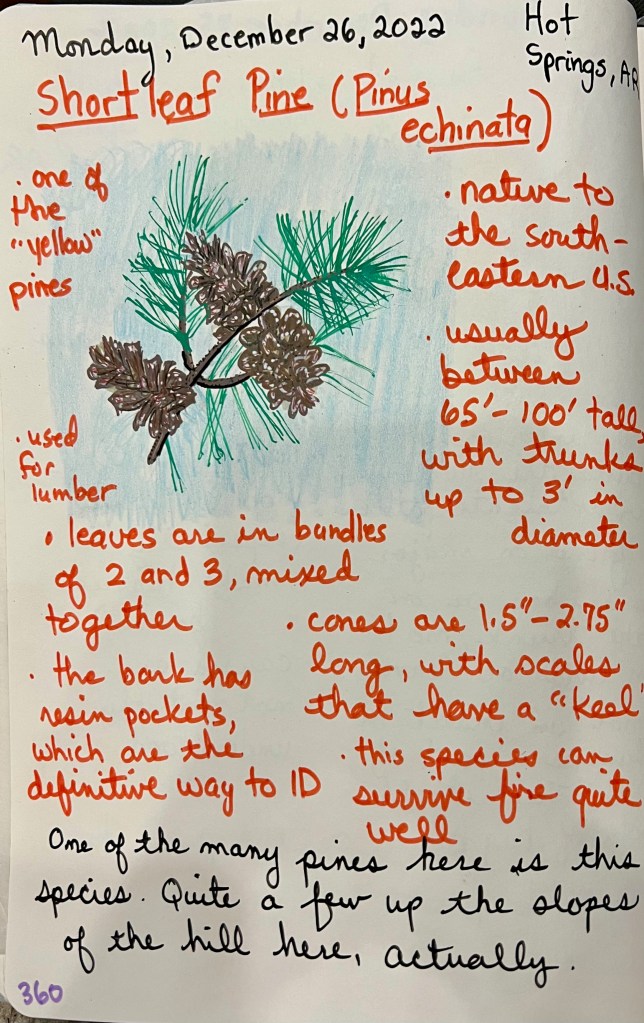 Monday, December 26, 2022
Hot
Springs, AR
Shortleaf Pine (Pinus
echinata)
· one of
the
"yellow"
pines
· native to
the south-
eastern U.S.
· usually
between
65'-100' tall,
with trunks
up to 3' in
diameter
· used
for
lumber
· leaves are in bundles
of 2 and 3, mixed
together
· cones are 1.5"-2.75"
long, with scales
that have a "keel"
· the bark has
resin pockets,
which are the
definitive way to ID
· this species can
survive fire quite
well
One of the many pines here is this
species. Quite a few up the slopes
of the hill here, actually.
360